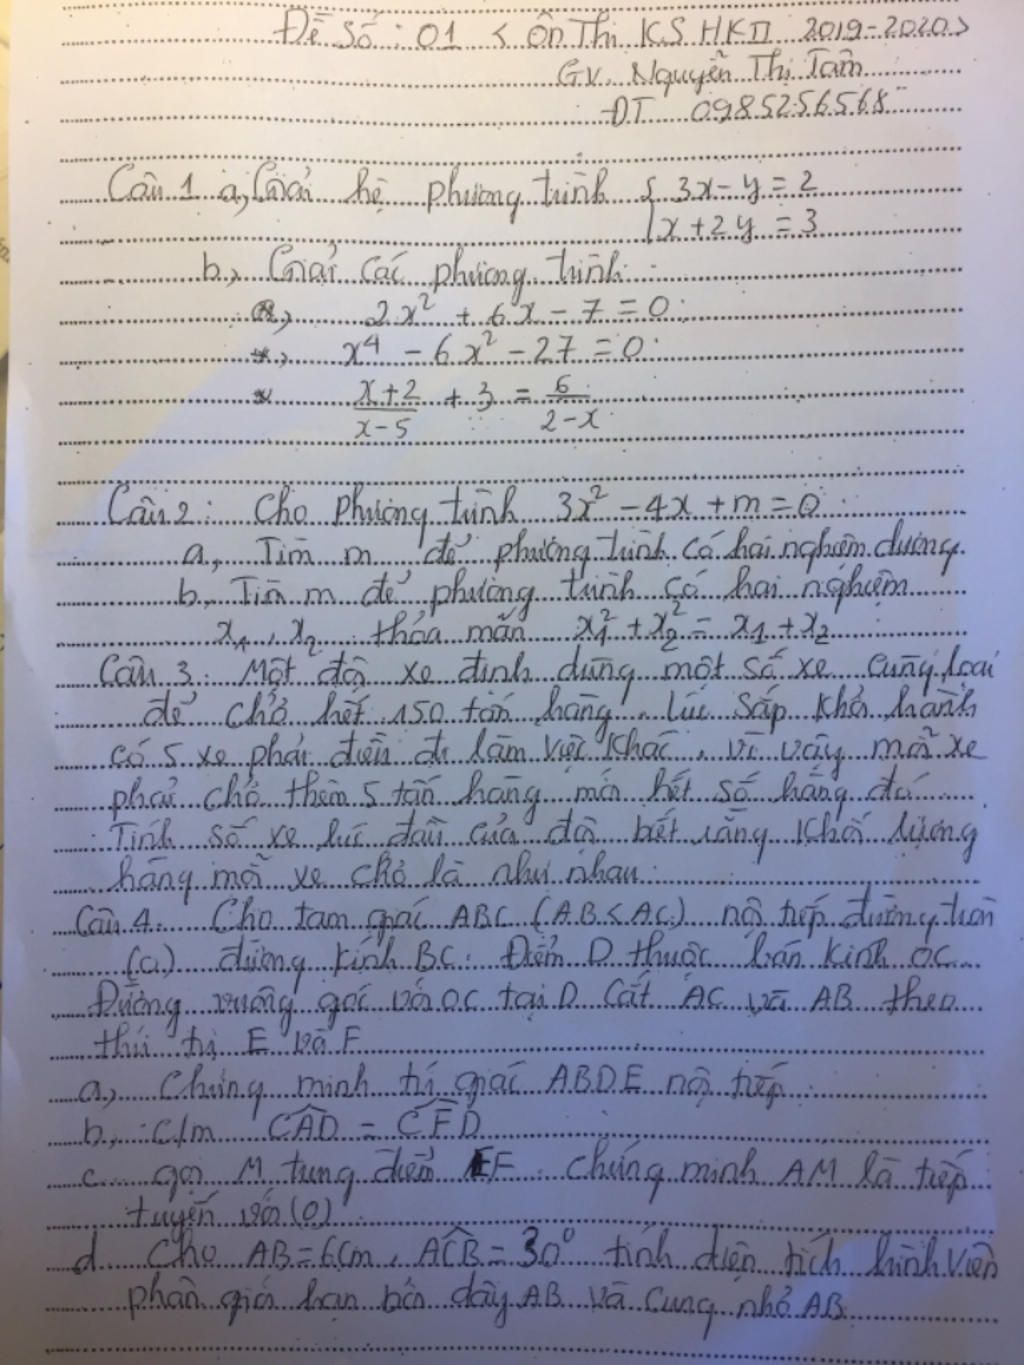 Đề Số: 01 < Ôn Thi KS HKII 2019-2020>
GV. Nguyễn Thị Tâm
ĐT 0985256568
Câu 1 a, Giải hệ phương trình { 3x - y = 2
x + 2y = 3
b, Giải các phương trình:
*, 2x² + 6x - 7 = 0
*, x⁴ - 6x² - 27 = 0
* (x+2)/(x-5) + 3 = 6/(2-x)
Câu 2: Cho phương trình 3x² - 4x + m = 0
a, Tìm m để phương trình có hai nghiệm dương.
b, Tìm m để phương trình có hai nghiệm
x₁, x₂ thỏa mãn x₁² + x₂² = x₁ + x₂
Câu 3: Một đội xe định dùng một số xe cùng loại
để chở hết 150 tấn hàng. Lúc sắp khởi hành
có 5 xe phải điều đi làm việc khác, vì vậy mỗi xe
phải chở thêm 5 tấn hàng mới hết số hàng đó
Tính số xe lúc đầu của đội biết rằng khối lượng
hàng mỗi xe chở là như nhau.
Câu 4. Cho tam giác ABC (AB<AC) nội tiếp đường tròn
(O) đường kính BC. Điểm D thuộc bán kính OC
Đường vuông góc với OC tại D cắt AC và AB theo
thứ tự E và F
a, Chứng minh tứ giác ABDE nội tiếp
b, C/m CAD = CFD
c gọi M trung điểm EF. Chứng minh AM là tiếp
tuyến với (O)
d Cho AB = 6cm, ACB = 30° tính diện tích hình viên
phân giới hạn bởi dây AB và cung nhỏ AB